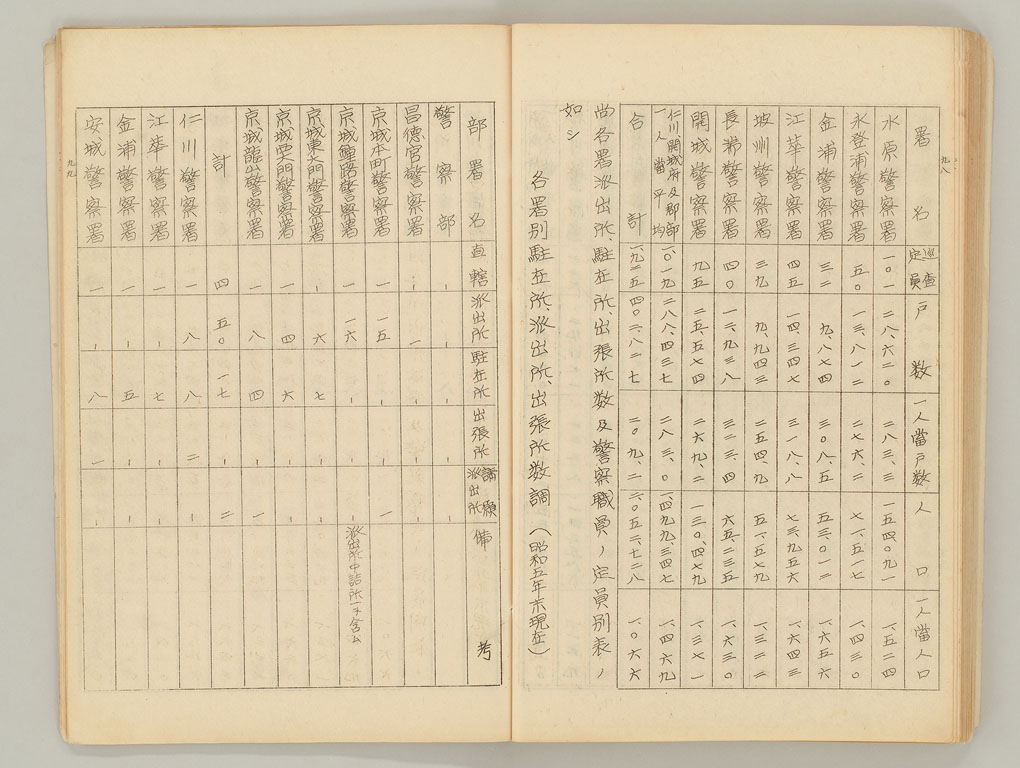 九八
署名 巡査定員 戸数 一人當戸数 人口 一人當人口
水原警察署 一〇一 二八、六二〇 二八三、三 一五四、〇九一 一、五二四
永登浦警察署 五〇 一三、八一二 二七六、二 七一、五一七 一、四三〇
金浦警察署 三二 九、八七四 三〇八、五 五三、〇一二 一、六五六
江華警察署 四五 一四、三四七 三一八、八 七三、九五六 一、六四三
坡州警察署 三九 九、九四三 二五四、九 五一、五七九 一、三二二
長湍警察署 四〇 一二、九三八 三二三、四 六五、二三五 一、六三〇
開城警察署 九五 二五、五七四 二六九、二 一三〇、四七九 一、三七一
仁川、開城府及郡部一人當平均 一、〇一九 二八八、四三七 二八三、〇 一、四九九、三四七 一、四六九
合計 一、九二五 四〇二、八二七 二〇九、二 二、〇五二、七二八 一、〇六六
尚各署派出所、駐在所、出張所数及警察職員ノ定員別表ノ
如シ
各署別駐在所、派出所、出張所数調 (昭和五年末現在)
部署名 直轄 派出所 駐在所 出張所 請願派出所 備考
警察部 ー ー ー ー ー
昌徳宮警察署 ー 一 ー ー ー
京城本町警察署 一 一五 ー ー 一
京城鍾路警察署 一 一六 ー ー ー 派出所中詰所一ヲ含ム
京城東大門警察署 一 六 七 ー ー
京城西大門警察署 一 四 六 ー ー
京城龍山警察署 一 八 四 ー 一
計 四 五〇 一七 ー 二
仁川警察署 一 八 八 二 ー
江華警察署 一 ー 七 ー ー
金浦警察署 一 ー 五 ー ー
安城警察署 一 ー 八 一 ー
九九